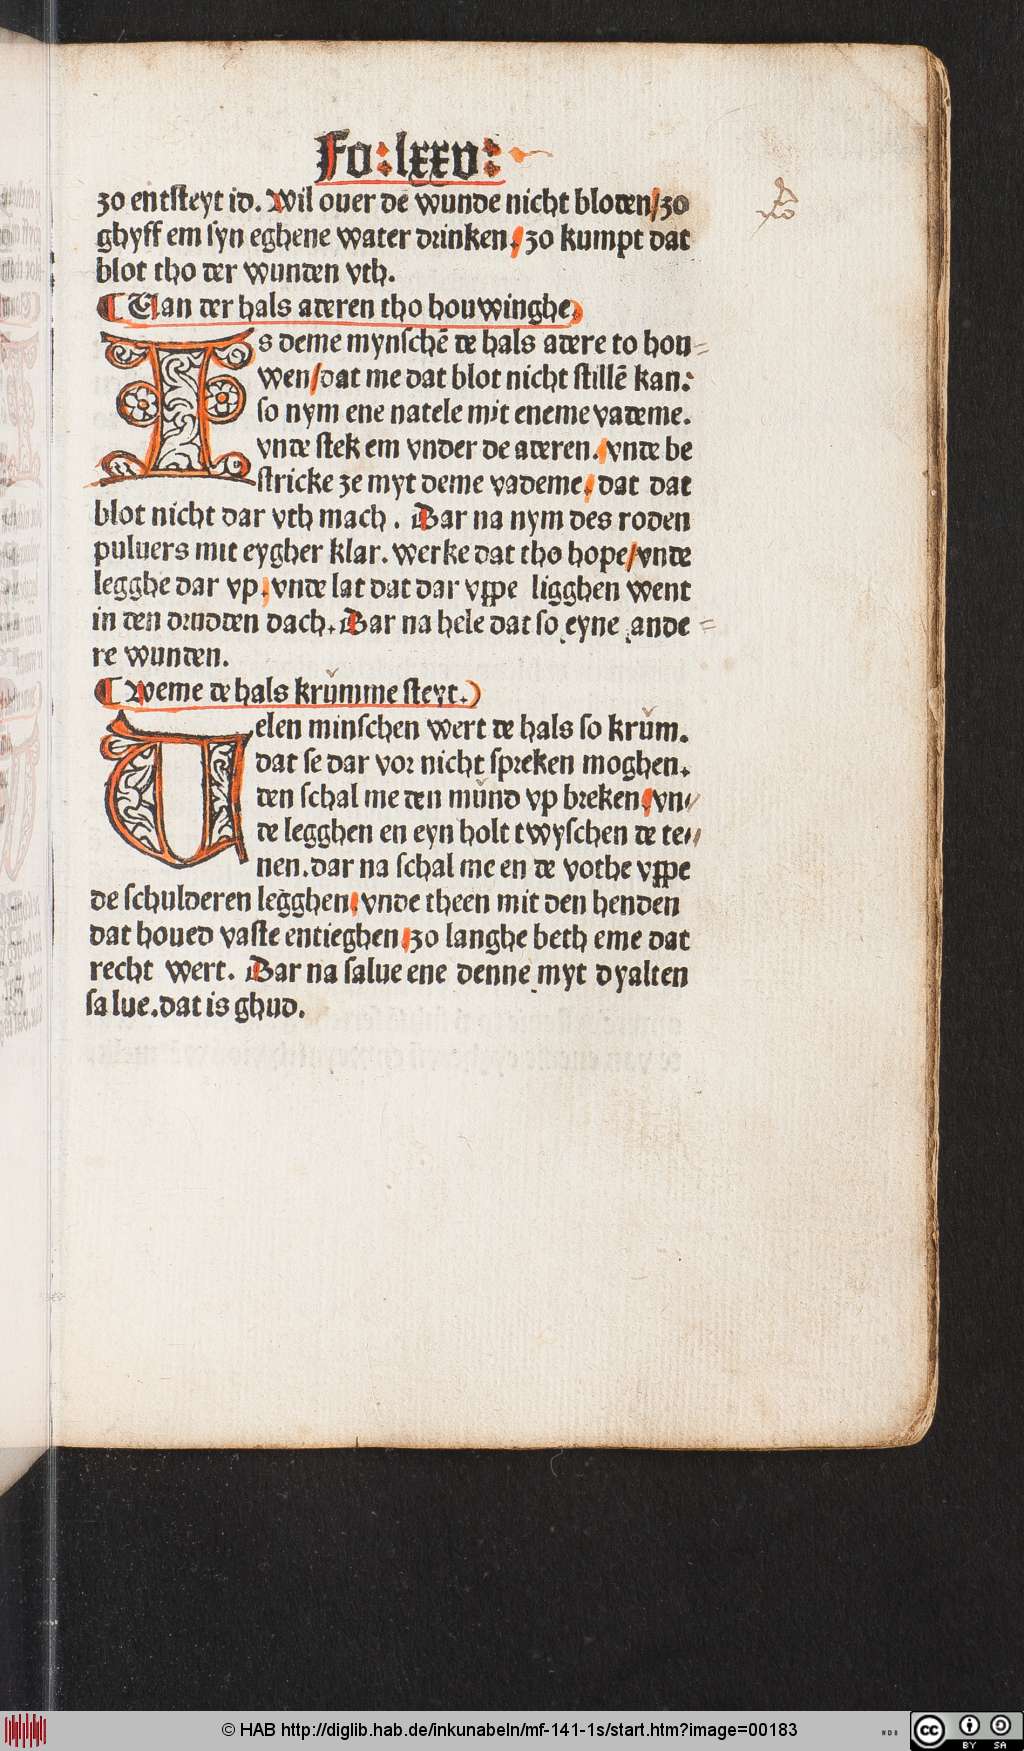 Fo:lxxv:
zo entſteyt id. Wil ouer de wunde nicht bloden/zo
ghyff em ſyn eghene water drinken. zo kumpt dat
blot tho der wunden vth.
¶ Van der hals aderen tho houwinghe.
IS deme mynſchē de hals adere to hou-
wen/dat me dat blot nicht ſtillē kan:
ſo nym ene natele mit eneme vademe.
vnde ſtek em vnder de aderen. vnde be
ſtricke ze myt deme vademe. dat dat
blot nicht dar vth mach. Dar na nym des roden
puluers mit eygher klar. werke dat tho hope/vnde
legghe dar vp. vnde lat dat dar vppe ligghen went
in den drudden dach. Dar na hele dat ſo eyne ande-
re wunden.
¶ Weme de hals krůmme ſteyt.
Uelen minſchen wert de hals ſo krům.
dat ſe dar vor nicht ſpreken moghen.
den ſchal me den můnd vp breken. vn-
de legghen en eyn holt twyſchen de te-
nen. dar na ſchal me en de vothe vppe
de ſchulderen legghen. vnde theen mit den henden
dat houed vaſte entieghen. zo langhe beth eme dat
recht wert. Dar na ſalue ene denne myt dyalten
ſalue. dat is ghud.
© HAB http://diglib.hab.de/inkunabeln/mf-141-1s/start.htm?image=00183
WDB
CC BY SA